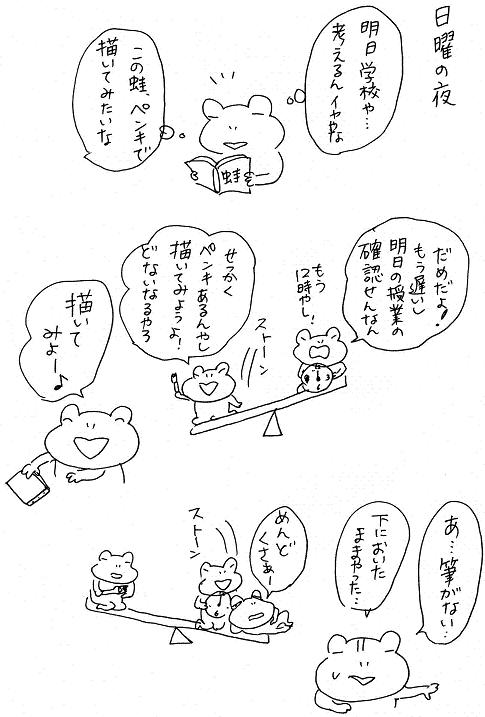 日曜の夜
明日学校や…
考えるんイヤやな
この蛙、ペンキで
描いてみたいな
蛙
だめだよ!
もう遅いし
明日の授業の
確認せんなん
もう
12時やし!
ストーン
せっかく
ペンキあるんやし
描いてみようよ!
どないなるやろ
描いて
みよー♪
あ…筆がない…
下においた
ままやった…
めんど
くさぁー
ストーン